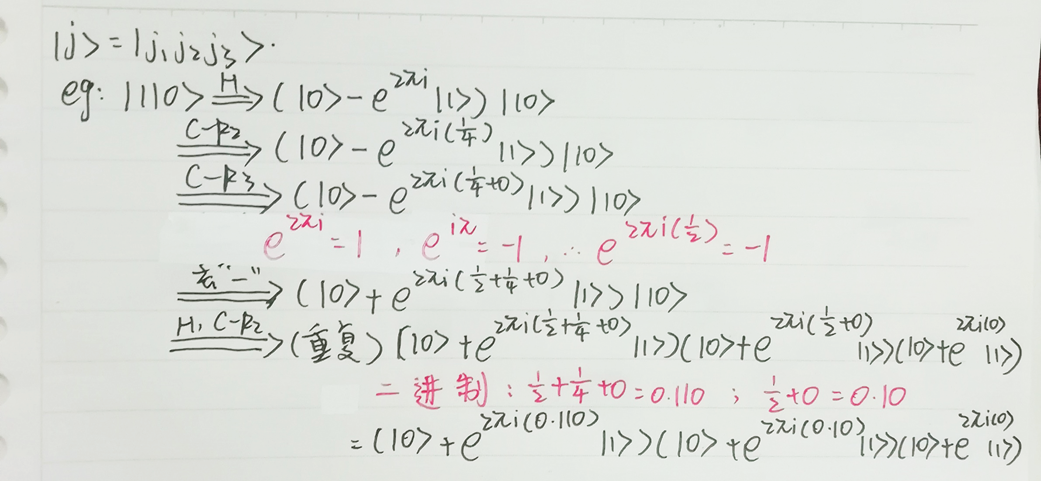 |j> = |j₁j₂j₃>.
eg: |110> =H=> (|0> - e^{2πi}|1>)|10>
=C-R2=> (|0> - e^{2πi(1/4)}|1>)|10>
=C-R3=> (|0> - e^{2πi(1/4+0)}|1>)|10>
e^{2πi} = 1 , e^{iπ} = -1 , ∴ e^{2πi(1/2)} = -1
=去"-"=> (|0> + e^{2πi(1/2+1/4+0)}|1>)|10>
=H, C-R2=> (重复) (|0> + e^{2πi(1/2+1/4+0)}|1>)(|0> + e^{2πi(1/2+0)}|1>)(|0> + e^{2πi(0)}|1>)
二进制: 1/2+1/4+0 = 0.110 ; 1/2+0 = 0.10
= (|0> + e^{2πi(0.110)}|1>)(|0> + e^{2πi(0.10)}|1>)(|0> + e^{2πi(0)}|1>)